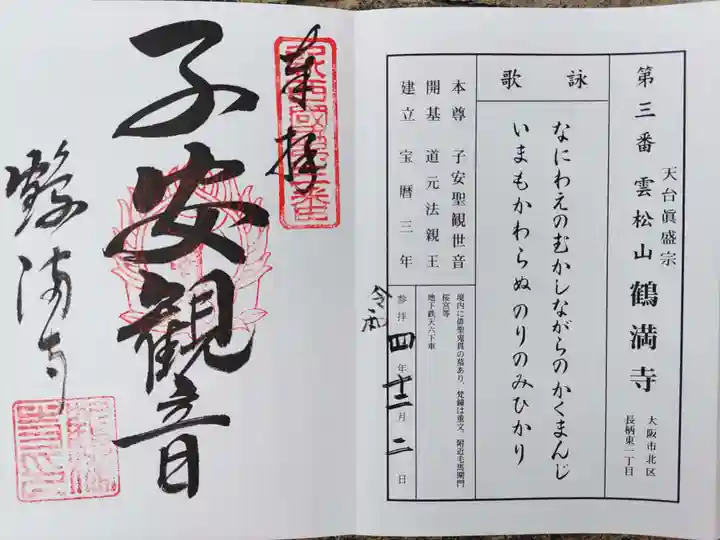 第三番
天台眞盛宗
雲松山
鶴満寺
大阪市北区
長柄東一丁目
詠歌
なにわえのむかしながらのかくまんじ
いまもかわらぬのりのみひかり
本尊 子安聖観世音
開基 道元法親王
建立 宝暦三年
境内に俳聖鬼貫の墓あり、梵鐘は重文、附近毛馬閘門
桜宮等
地下鉄天六下車
令和
参拝 四年十二月二日
奉拝
子安観音
鶴満寺